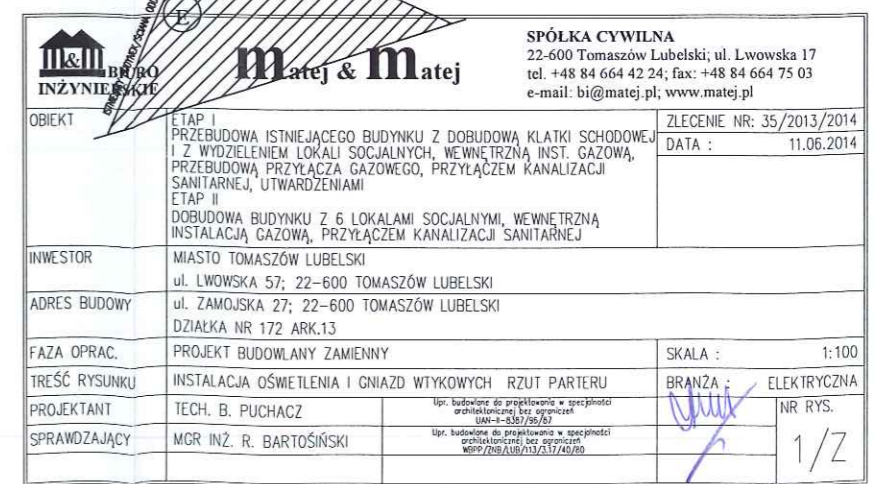 E
M&M
BIURO
INŻYNIERSKIE
Matej & Matej
SPÓŁKA CYWILNA
22-600 Tomaszów Lubelski; ul. Lwowska 17
tel. +48 84 664 42 24; fax: +48 84 664 75 03
e-mail: bi@matej.pl; www.matej.pl
OBIEKT
ETAP I
PRZEBUDOWA ISTNIEJĄCEGO BUDYNKU Z DOBUDOWĄ KLATKI SCHODOWEJ
I Z WYDZIELENIEM LOKALI SOCJALNYCH, WEWNĘTRZNĄ INST. GAZOWĄ,
PRZEBUDOWĄ PRZYŁĄCZA GAZOWEGO, PRZYŁĄCZEM KANALIZACJI
SANITARNEJ, UTWARDZENIAMI
ETAP II
DOBUDOWA BUDYNKU Z 6 LOKALAMI SOCJALNYMI, WEWNĘTRZNĄ
INSTALACJĄ GAZOWĄ, PRZYŁĄCZEM KANALIZACJI SANITARNEJ
ZLECENIE NR: 35/2013/2014
DATA : 11.06.2014
INWESTOR
MIASTO TOMASZÓW LUBELSKI
ul. LWOWSKA 57; 22-600 TOMASZÓW LUBELSKI
ADRES BUDOWY
ul. ZAMOJSKA 27; 22-600 TOMASZÓW LUBELSKI
DZIAŁKA NR 172 ARK.13
FAZA OPRAC. PROJEKT BUDOWLANY ZAMIENNY SKALA : 1:100
TREŚĆ RYSUNKU INSTALACJA OŚWIETLENIA I GNIAZD WTYKOWYCH RZUT PARTERU BRANŻA : ELEKTRYCZNA
PROJEKTANT TECH. B. PUCHACZ
Upr. budowlane do projektowania w specjalności
architektonicznej bez ograniczeń
UAN-II-8387/95/87
NR RYS.
SPRAWDZAJĄCY MGR INŻ. R. BARTOŚIŃSKI
Upr. budowlane do projektowania w specjalności
architektonicznej bez ograniczeń
WBPP/ZNB/LUB/113/3.17/40/80
1/Z